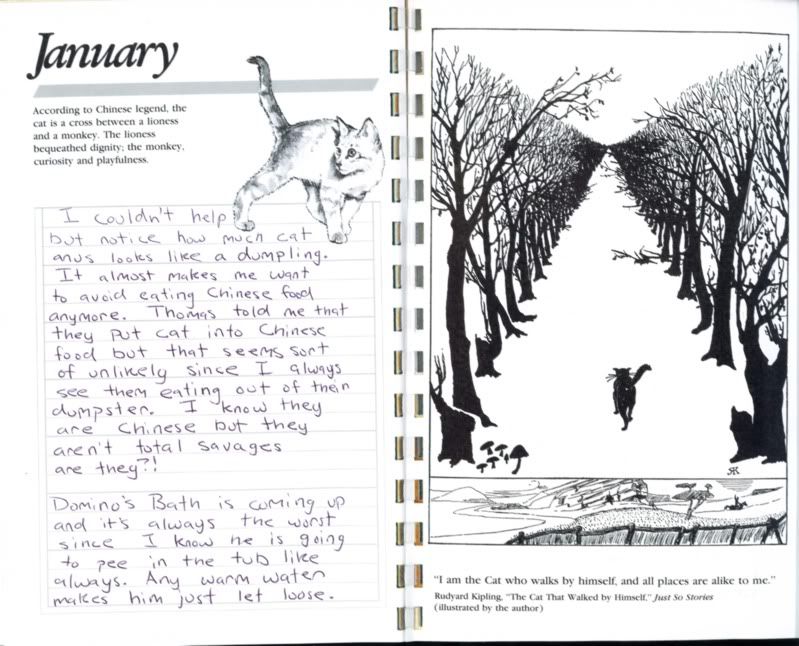 January
According to Chinese legend, the
cat is a cross between a lioness
and a monkey. The lioness
bequeathed dignity; the monkey,
curiosity and playfulness.
I couldn't help
but notice how much cat
anus looks like a dumpling.
It almost makes me want
to avoid eating Chinese food
anymore. Thomas told me that
they put cat into Chinese
food but that seems sort
of unlikely since I always
see them eating out of their
dumpster. I know they
are Chinese but they
aren't total savages
are they?!
Domino's Bath is coming up
and it's always the worst
since I know he is going
to pee in the tub like
always. Any warm water
makes him just let loose.
RK
"I am the Cat who walks by himself, and all places are alike to me."
Rudyard Kipling, "The Cat That Walked by Himself," Just So Stories
(illustrated by the author)